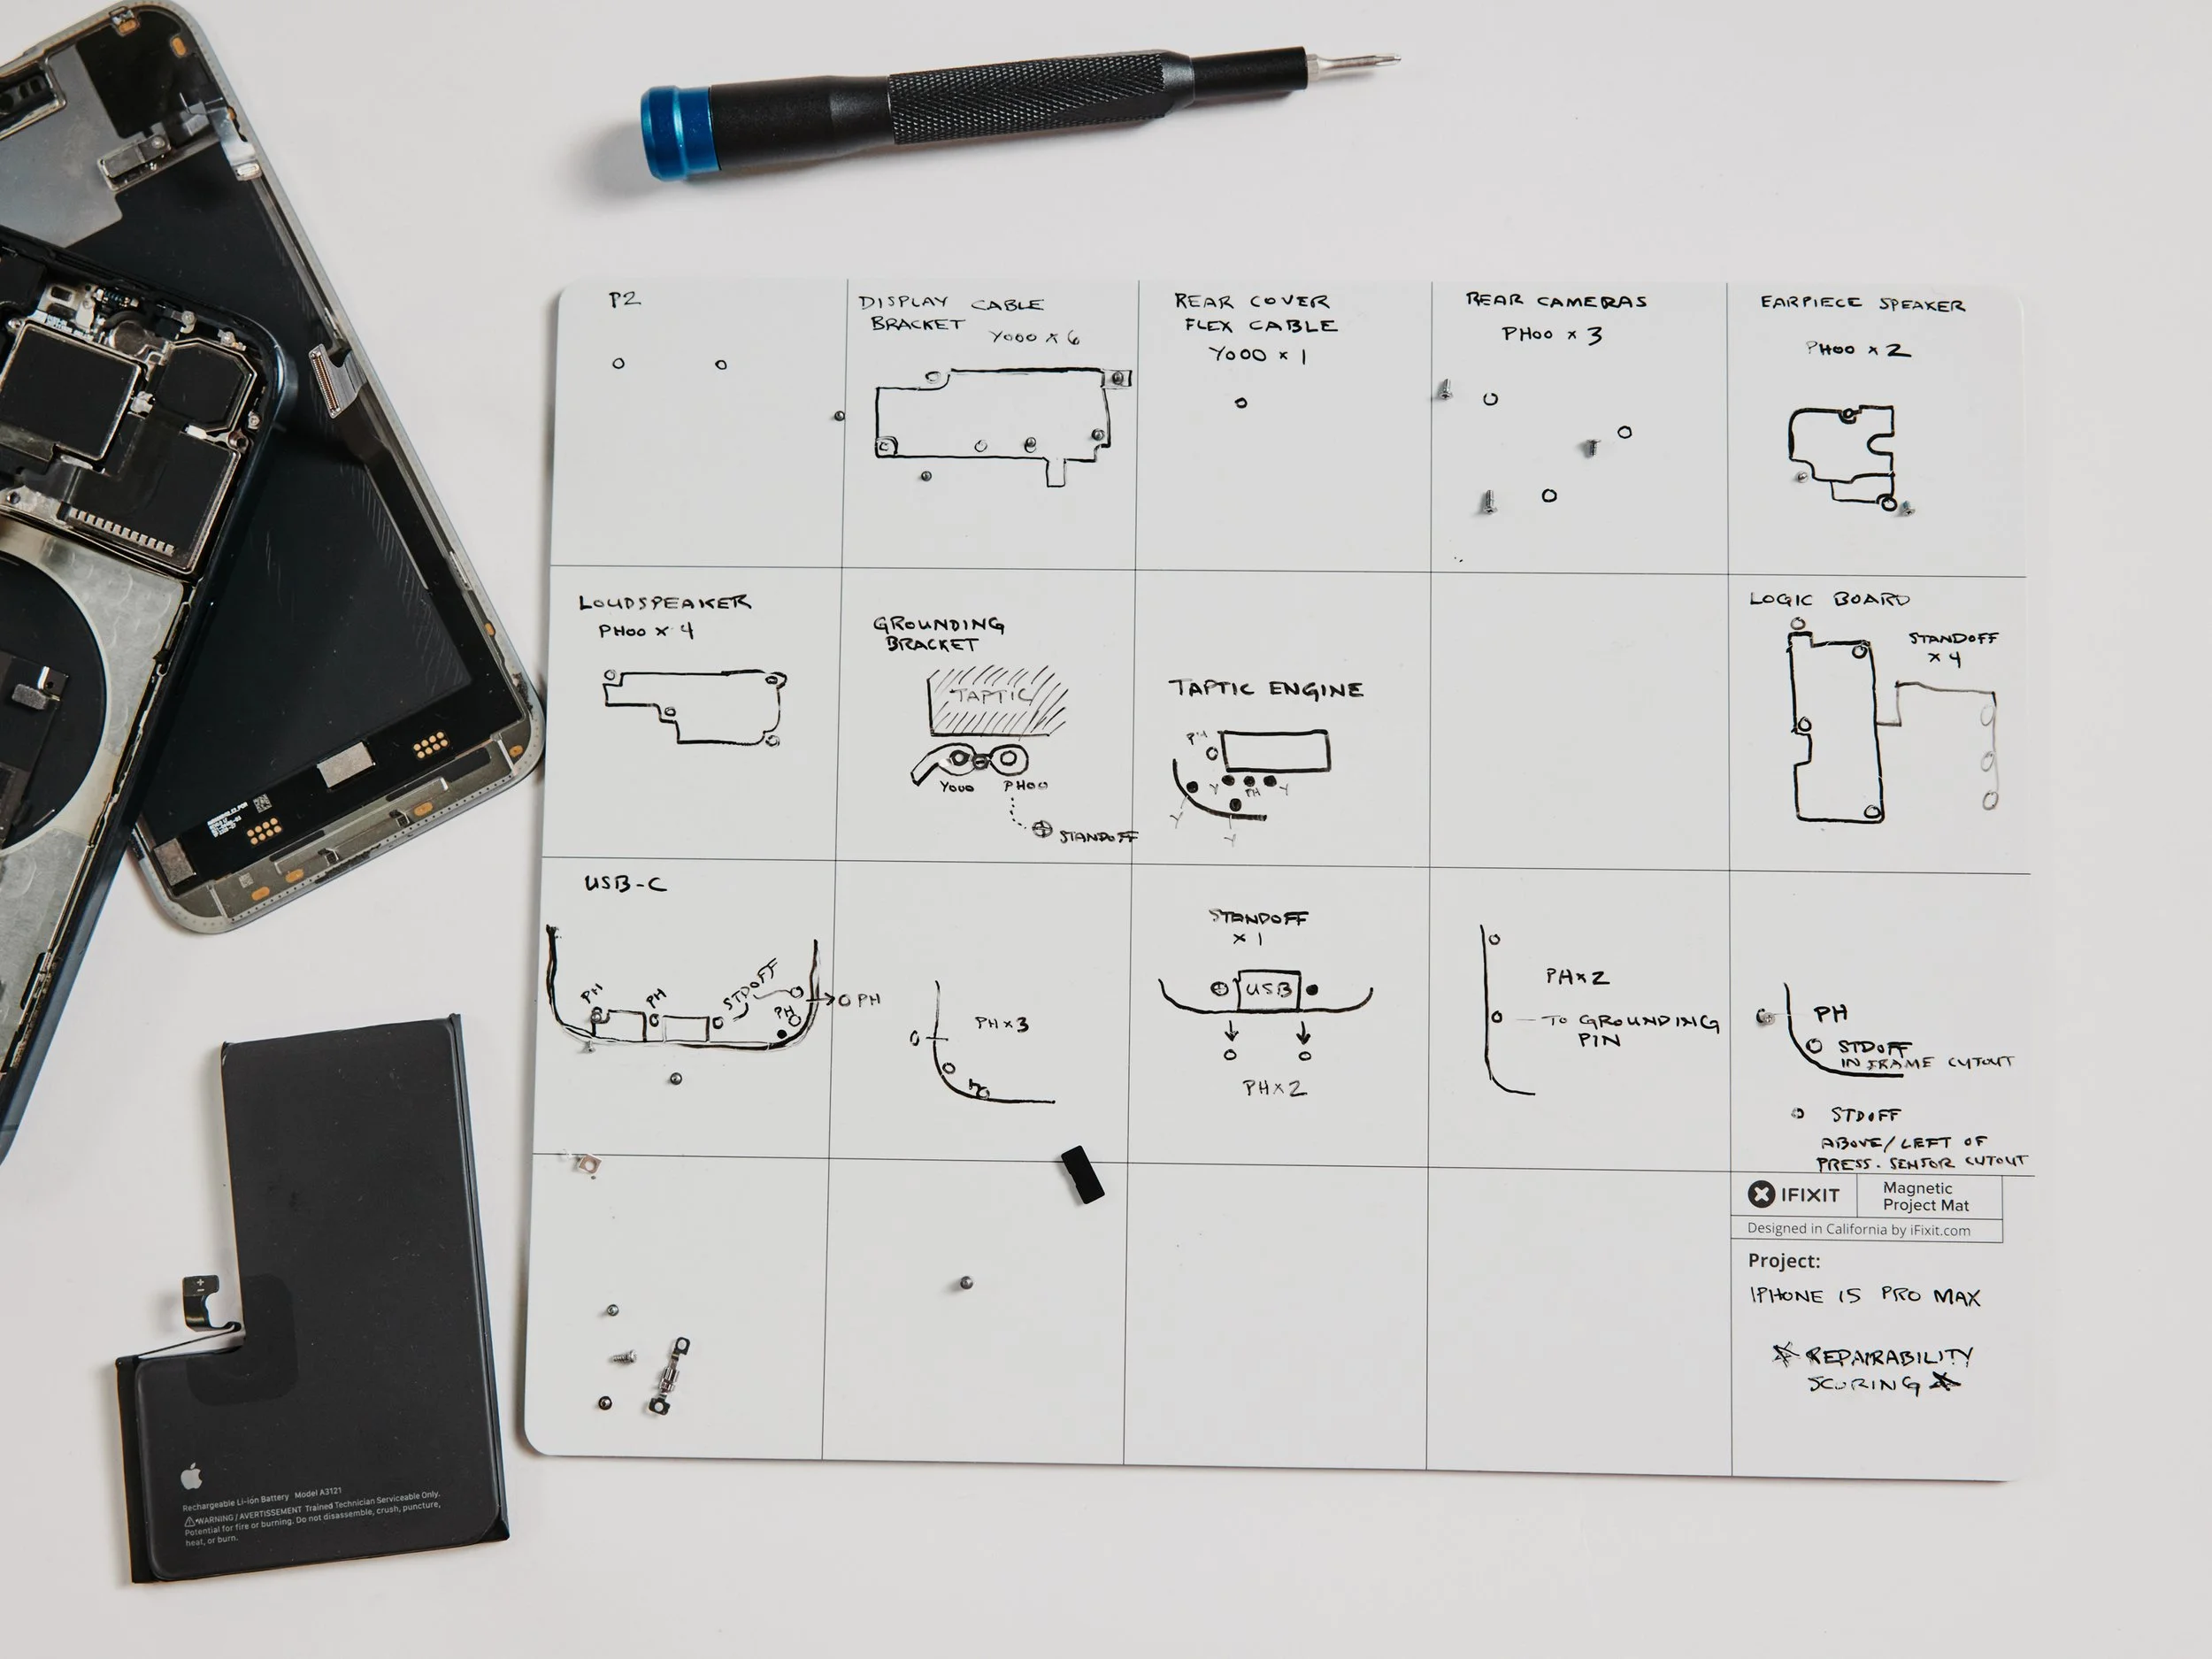 P2
DISPLAY CABLE
BRACKET Y000 x 6
REAR COVER
FLEX CABLE
Y000 x 1
REAR CAMERAS
PH00 x 3
EARPIECE SPEAKER
PH00 x 2
LOUDSPEAKER
PH00 x 4
GROUNDING
BRACKET
TAPTIC
Y000 PH00
STANDOFF
TAPTIC ENGINE
PH
Y PH Y
Y Y
LOGIC BOARD
STANDOFF
x 4
USB-C
PH PH STDOFF PH
PH
PH x 3
STANDOFF
x 1
USB
PH x 2
PH x 2
TO GROUNDING
PIN
PH
STDOFF
IN FRAME CUTOUT
STDOFF
ABOVE/LEFT OF
PRESS. SENSOR CUTOUT
IFIXIT
Magnetic
Project Mat
Designed in California by iFixit.com
Project:
IPHONE 15 PRO MAX
REPAIRABILITY
SCORING
Rechargeable Li-ion Battery Model A3121
WARNING / AVERTISSEMENT Trained Technician Serviceable Only.
Potential for fire or burning. Do not disassemble, crush, puncture,
heat, or burn.